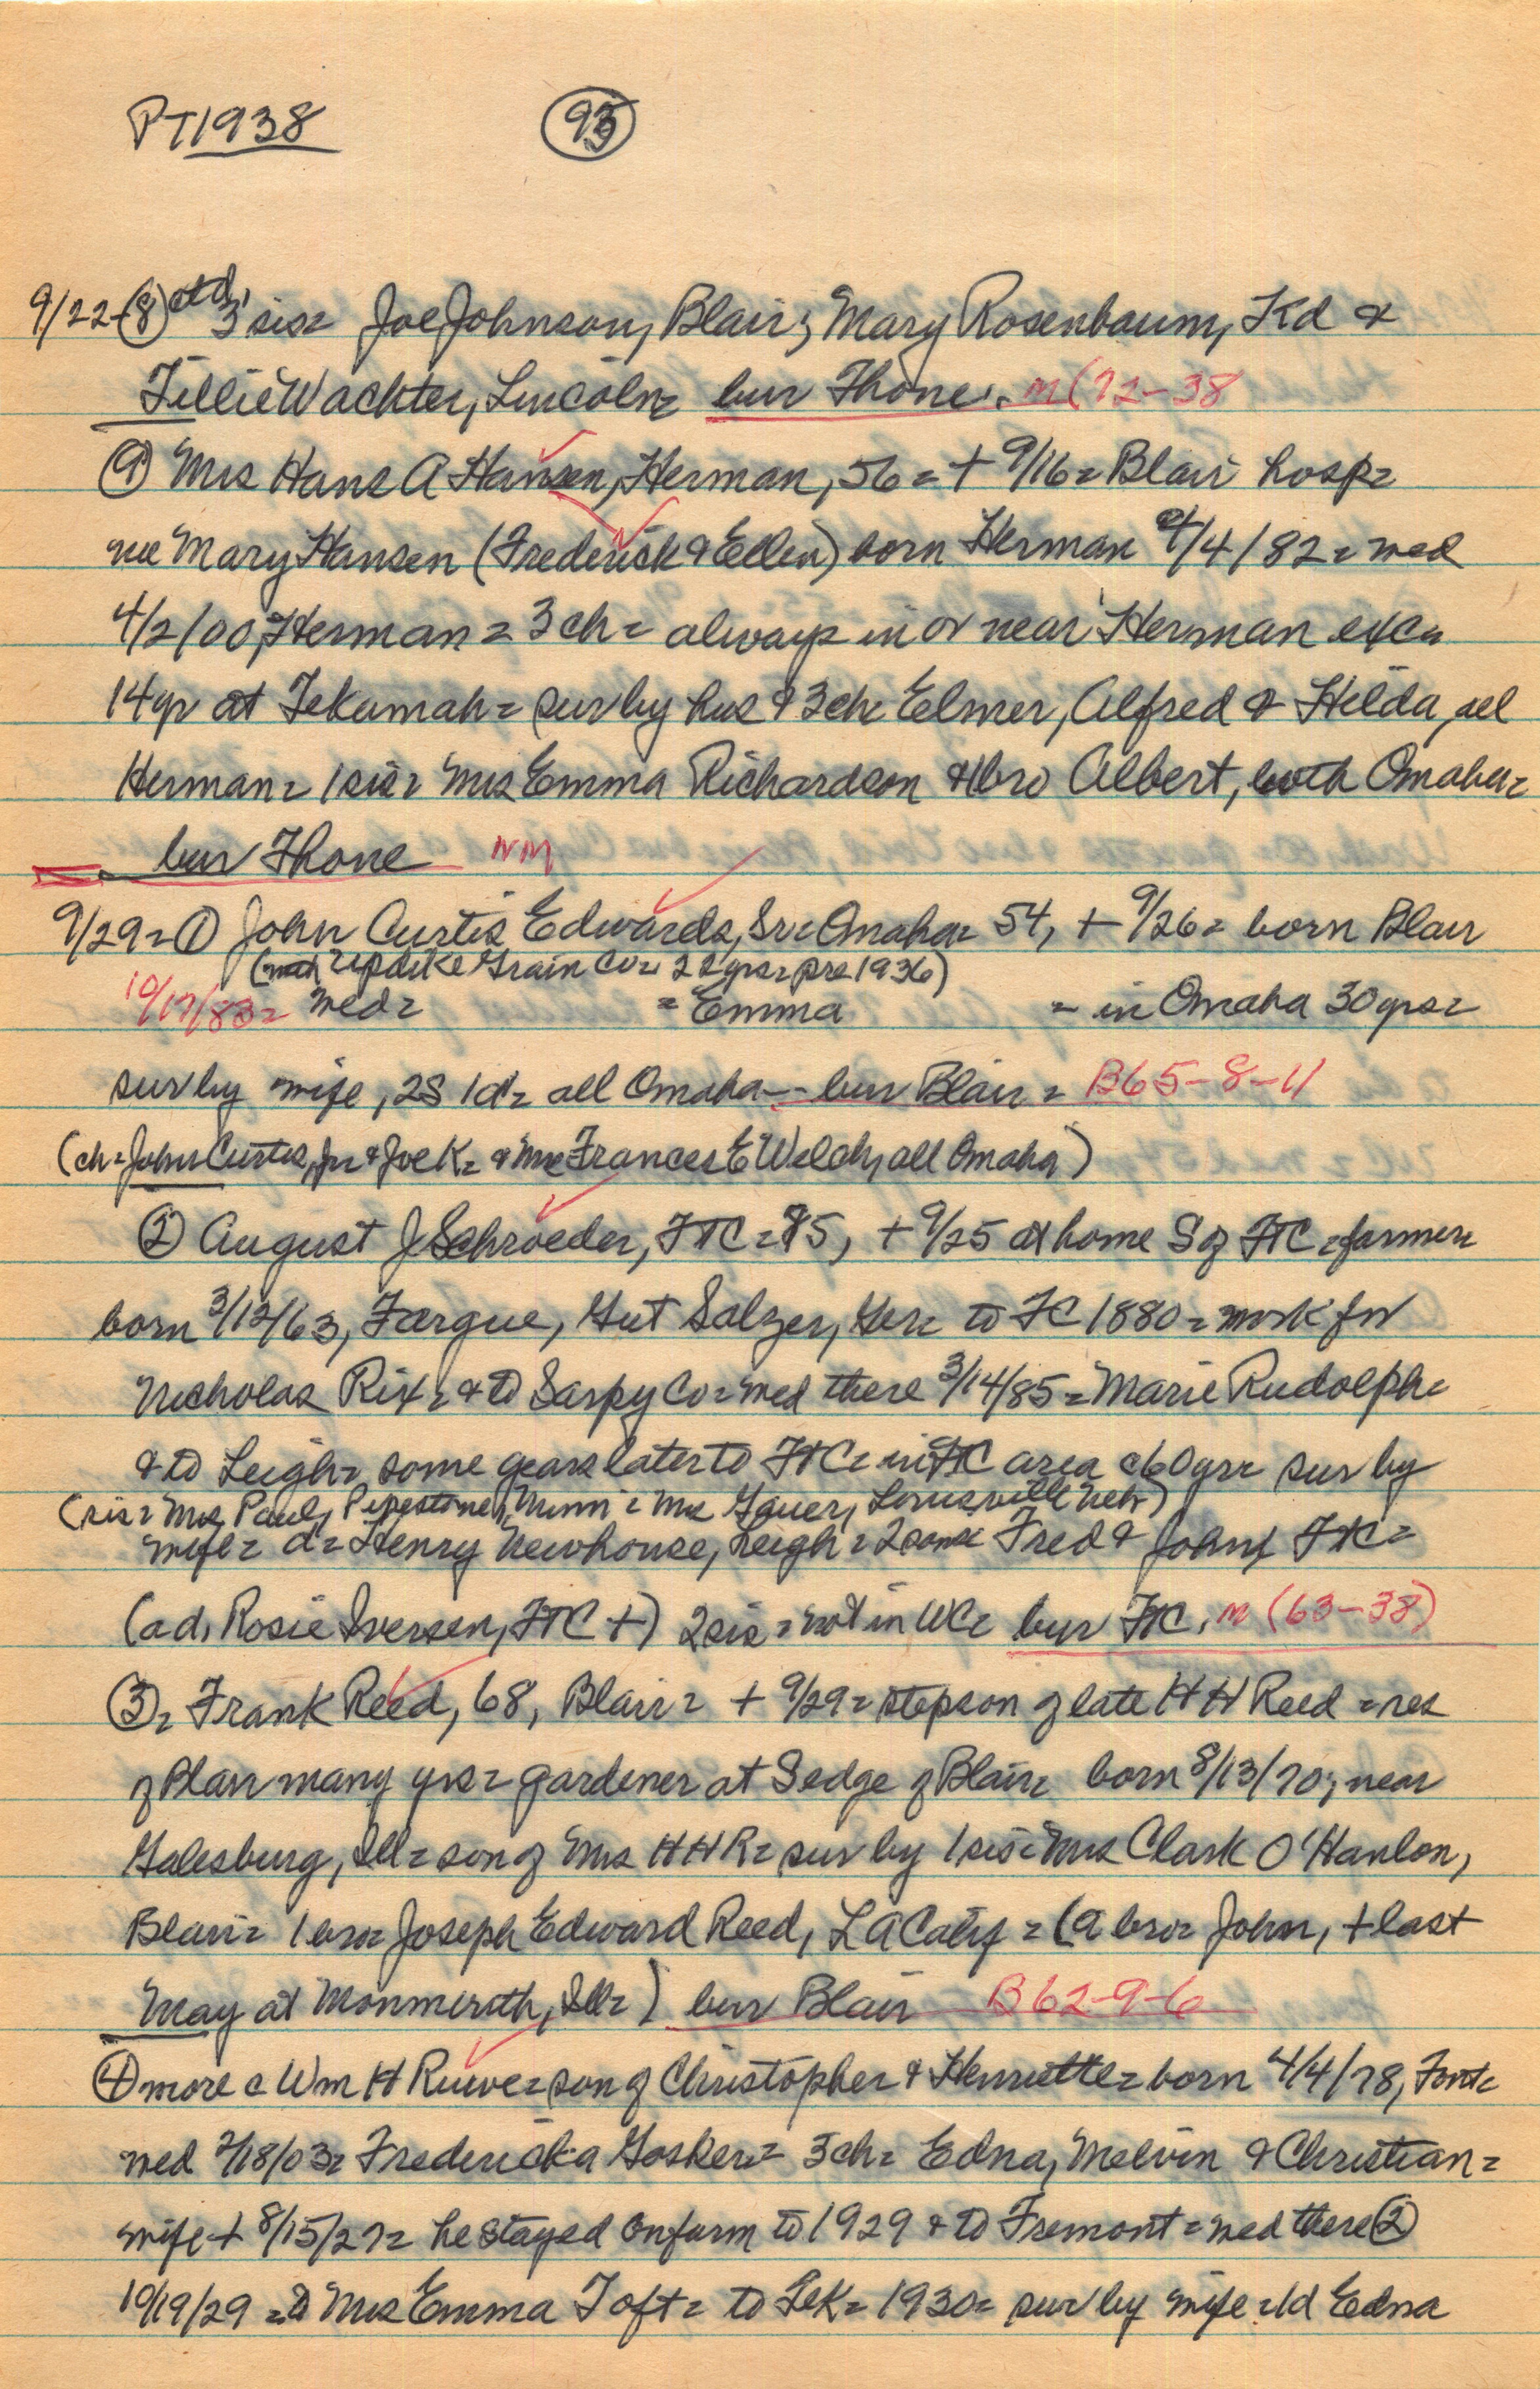 PT1938 (95)
9/22-(8) ctd, 3 sis= Joe Johnson, Blair; Mary Rosenbaum, Kd &
Tillie Wachter, Lincoln= bur Fhone. M(72-38
(9) Mrs Hans A Hansen, Herman, 56 = + 9/16= Blair hosp=
nee Mary Hansen (Frederick & Ellen) born Herman 4/4/82= wed
4/2/00, Herman = 3 ch= always in or near Herman exc=
14 yr at Tekamah= sur by hus & 3 ch= Elmer, Alfred & Hilda, all
Herman= 1 sis= Mrs Emma Richardson & 1 bro Albert, both Omaha=
bur Fhone NM
9/29=(1) John Curtis Edwards, Sr= Omaha= 54, + 9/26= born Blair
(with Updike Grain Co= 22 yrs= pre 1936)
10/17/83= wed= = Emma = in Omaha 30 yrs=
sur by wife, 2S 1d= all Omaha-- bur Blair = B65-8-11
(ch= John Curtis, Jr & Joe K= & Mrs Frances E Welch, all Omaha)
(2) August J Schroeder, FTC= 75, + 9/25 at home S of FTC= farmer=
born 3/12/63, Fargue, Gut Salzer, Ger= to FC 1880= work for
Nicholas Rix= & to Sarpy Co= wed there 3/14/85= Marie Rudolph=
& to Leigh= some years later to FTC= in FTC area c60 yr= sur by
(sis= Mrs Paul, Pipestone, Minn= Mrs Gauer, Louisville Neb)
wife= d= Henry Newhouse, Leigh= 2 sons Fred & John, FTC=
(a d, Rosie Iversen, FTC +) 2 sis= not in WC= bur FTC. M (63-38)
(3)= Frank Reed, 68, Blair= + 9/29= stepson of late H H Reed = res
of Blair many yrs= gardener at S edge of Blair= born 8/13/70; near
Galesburg, Ill= son of Mrs HHR= sur by 1 sis= Mrs Clark O'Hanlon,
Blair= 1 bro= Joseph Edward Reed, LA Calif = (a bro= John, + last
May at Monmouth, Ill=) bur Blair B62-9-6
(4) more c Wm H Ruwe= son of Christopher & Henriette= born 4/4/78, Font=
wed 2/18/03= Fredericka Gosker= 3 ch= Edna, Melvin & Christian=
wife + 8/15/27= he stayed on farm to 1929 & to Fremont= wed there (2)
10/19/29 = Mrs Emma Toft= to Tek= 1930= sur by wife= 1d Edna